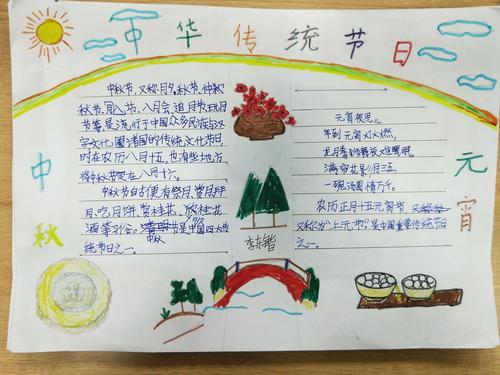 中华传统节日
中秋
中秋节，又称月夕、秋节、仲秋
秋节、
八月会、追月节、玩月
节等，是流行于中国众多民族与汉
字文化圈诸国的传统文化节日
时在农历八月十五，也有些地方
将中秋节定在八月十六。
中秋节自古便有祭月、赏月、拜
月、吃月饼、赏桂花、饮桂花
酒等习俗。
节是中国四大传
中秋
统节日之一。
元宵
元宵夜思。
年到元宵灯火燃，
龙腾
满
一碗汤圆情万千。
农历正月十五元宵节，
又称为“上元节”是中国重要传统节日
之一。
李东锴